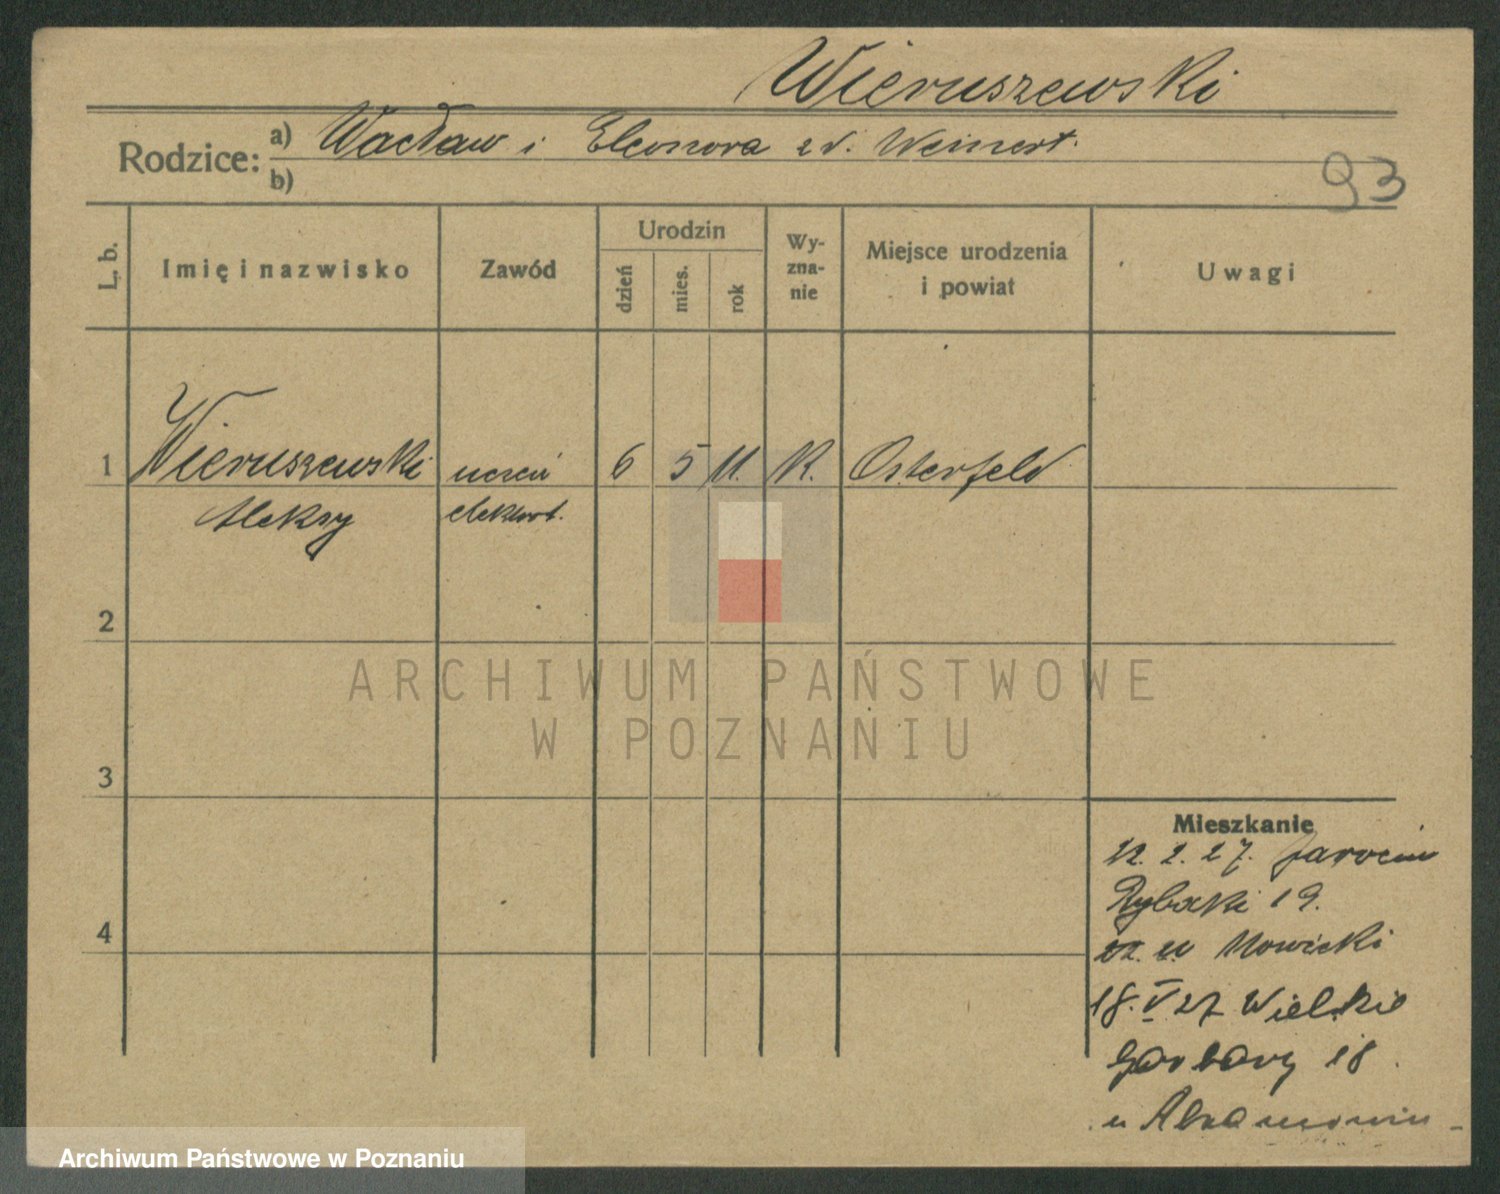 Wieruszewski
Rodzice:
a) Wacław i Eleonora z d. Weinert.
b)
93
L. b.
Imię i nazwisko
Zawód
Urodzin
dzień
mies.
rok
Wy-
zna-
nie
Miejsce urodzenia
i powiat
Uwagi
1 Wieruszewski uczeń 6 5 11. K. Osterfeld
Aleksy elektrot.
2
3
4
Mieszkanie
2. 27. Jarocin
Rybaki 19.
u Nowicki
18. V 27 Wielkie
Garbary 18.
u
ARCHIWUM PAŃSTWOWE
W POZNANIU
Archiwum Państwowe w Poznaniu